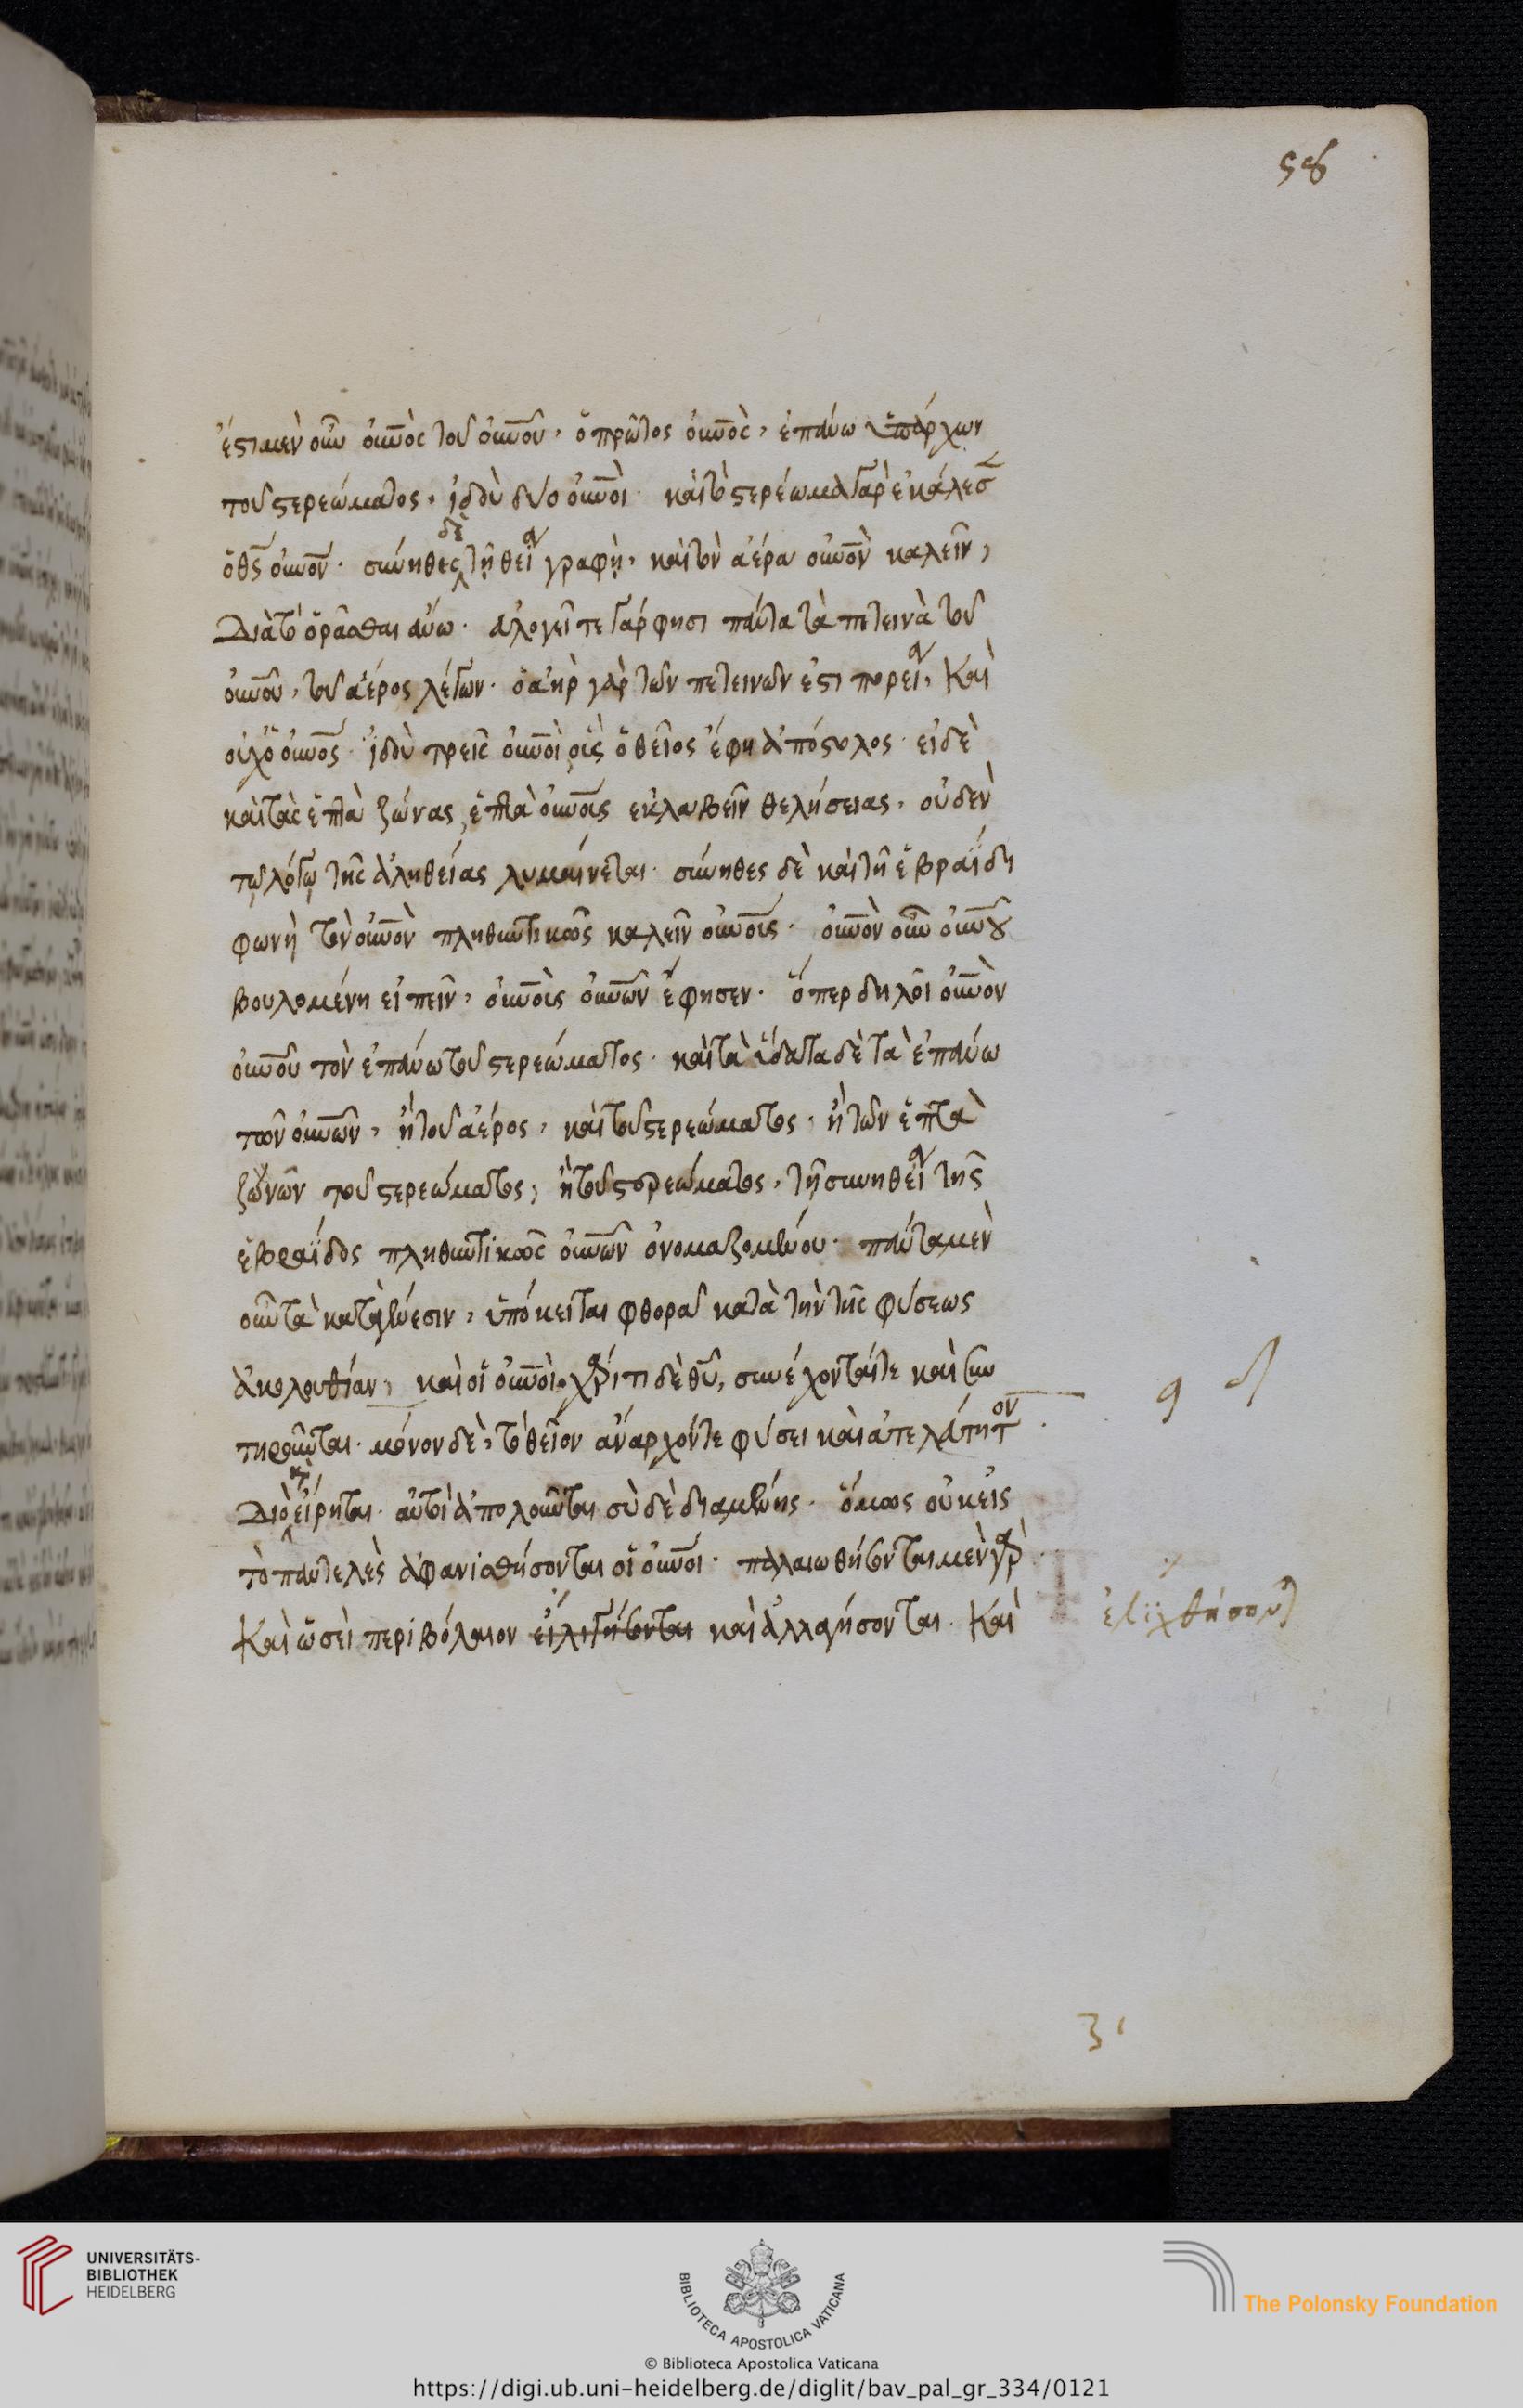 58
ἔστι μὲν οὖν οὐνὸς τοῦ οὐνοῦ, ὁ πρῶτος οὐνὸς, ἐπάνω ὑπάρχων
τοῦ στερεώματος, ἰδοὺ δύο οὐνοὶ· καὶ τὸ στερέωμα γὰρ ἐκάλεσ
ὁ θς οὐνον· σύνηθες δὲ τῇ θείᾳ γραφῇ, καὶ τὸν ἀέρα οὐνὸν καλεῖν,
Διὰ τὸ ὁρᾶσθαι ἄνω· εὐλογεῖτε γάρ φησι πάντα τὰ πετεινὰ τοῦ
οὐνοῦ, τοῦ ἀέρος λέγων· ὁ ἀὴρ γὰρ τῶν πετεινῶν ἐστι πορεία, Καὶ
οὐχ ὁ οὐνος· ἰδοὺ τρεῖς οὐνοὶ οὓς ὁ θεῖος ἔφη ἀπόστολος· εἰ δὲ
καὶ τὰς ἑπτὰ ζώνας, ἑπτὰ οὐνοὺς ἐκλαβεῖν θελήσειας, οὐδὲν
τῷ λόγῳ τῆς ἀληθείας λυμαίνεται· σύνηθες δὲ καὶ τῇ ἑβραΐδι
φωνῇ τὸν οὐνὸν πληθυντικῶς καλεῖν οὐνοὺς· οὐνὸν οὖν οὐνοῦ
βουλομένη εἰπεῖν, οὐνοὺς οὐνῶν ἔφησεν· ὅπερ δηλοῖ οὐνὸν
οὐνοῦ τὸν ἐπάνω τοῦ στερεώματος· καὶ τὰ ὕδατα δὲ τὰ ἐπάνω
τῶν οὐνῶν, ἢ τοῦ ἀέρος, καὶ τοῦ στερεώματος, ἢ τῶν ἑπτὰ
ζωνῶν τοῦ στερεώματος, ἢ τοῦ στερεώματος, τῇ συνηθείᾳ τῆς
ἑβραΐδος πληθυντικῶς οὐνῶν ὀνομαζομένου· πάντα μὲν
οὖν τὰ κατὰ γένεσιν, ὑπόκειται φθορᾷ κατὰ τὴν τῆς φύσεως
ἀκολουθίαν, καὶ οἱ οὐνοὶ. χάριτι δὲ θῦ, συνέχονταί τε καὶ συν
τηροῦνται· μόνον δὲ, τὸ θεῖον ἄναρχόν τε φύσει καὶ ἀτελεύτητον
Διὸ καὶ εἴρηται· αὐτοὶ ἀπολοῦνται σὺ δὲ διαμένεις· ὅμως οὐκ εἰς
τὸ παντελὲς ἀφανισθήσονται οἱ οὐνοι· παλαιωθήσονται μὲν γὰρ
Καὶ ὡσεὶ περιβόλαιον εἱλιγήσονται καὶ ἀλλαγήσονται. Καὶ
ἑλιχθήσοντ
3